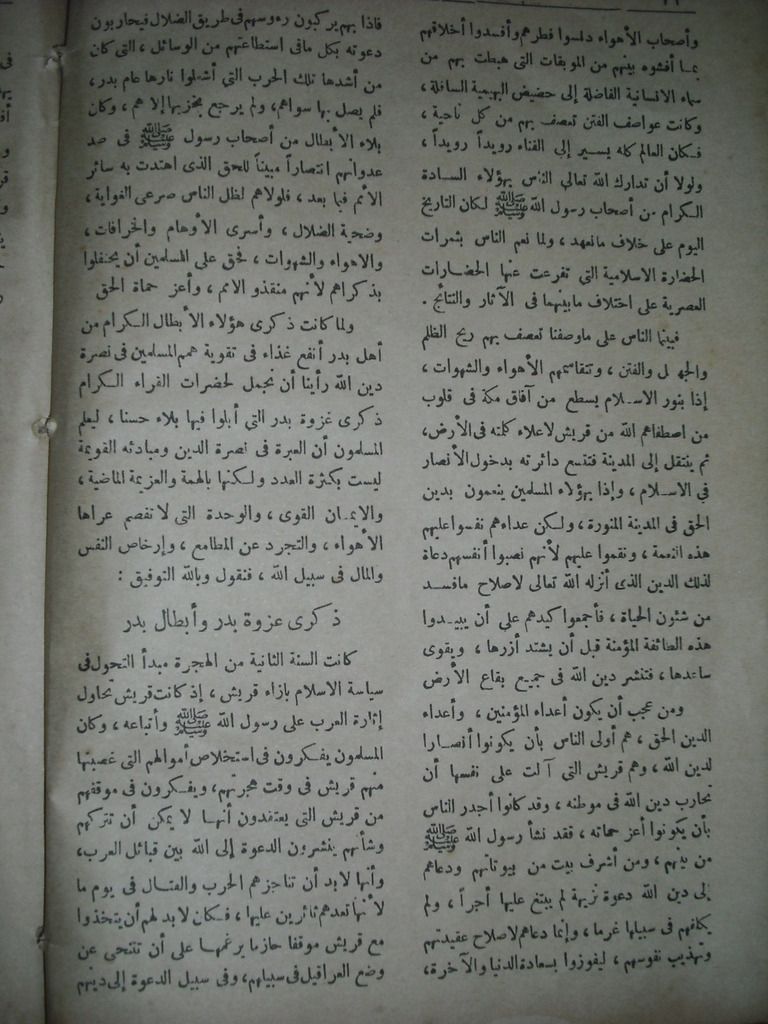 وأصحاب الأهواء دلسوا فطرهم وأفسدوا أخلاقهم
بما أفشوه بينهم من الموبقات التى هبطت بهم من
سماء الانسانية الفاضلة إلى حضيض البهيمية السافلة ،
وكانت عواصف الفتن تعصف بهم من كل ناحية ،
فكان العالم كله يسير إلى الفناء رويداً رويداً ،
ولولا أن تدارك الله تعالى الناس بهؤلاء السادة
الكرام من أصحاب رسول الله ﷺ لكان التاريخ
اليوم على خلاف مانعهد ، ولما نعم الناس بثمرات
الحضارة الاسلامية التى تفرعت عنها الحضارات
العصرية على اختلاف مابينهما فى الآثار والنتائج .
فبينما الناس على ماوصفنا تعصف بهم ريح الظلم
والجهل والفتن ، وتتقاسمهم الأهواء والشهوات ،
إذا بنور الاسلام يسطع من آفاق مكة فى قلوب
من اصطفاهم الله من قريش لاعلاء كلمته فى الأرض،
ثم ينتقل إلى المدينة فتتسع دائرته بدخول الأنصار
فى الاسلام ، وإذا بهؤلاء المسلمين ينعمون بدين
الحق فى المدينة المنورة ، ولكن عداءهم نفسوا عليهم
هذه النعمة ، ونقموا عليهم لأنهم نصبوا أنفسهم دعاة
لذلك الدين الذى أنزله الله تعالى لاصلاح مافسد
من شئون الحياة ، فأجمعوا كيدهم على أن يبيدوا
هذه الطائفة المؤمنة قبل أن يشتد أزرها ، ويقوى
ساعدها ، فتنشر دين الله فى جميع بقاع الأرض
ومن عجب أن يكون أعداء المؤمنين ، وأعداء
الدين الحق ، هم أولى الناس بأن يكونوا أنصارا
لدين الله ، وهم قريش التى آلت على نفسها أن
تحارب دين الله فى موطنه ، وقد كانوا أجدر الناس
بأن يكونوا أعز حماته ، فقد نشأ رسول الله ﷺ
من بينهم ، ومن أشرف بيت من بيوتاتهم ودعاهم
إلى دين الله دعوة نزيهة لم يبتغ عليها أجراً ، ولم
يكلفهم فى سبيلها غرما ، وإنما دعاهم لاصلاح عقيدتهم
وتهذيب نفوسهم ، ليفوزوا بسعادة الدنيا والآخرة،
فاذا بهم يركبون رءوسهم فى طريق الضلال فيحاربون
دعوته بكل مافى استطاعتهم من الوسائل ، التى كان
من أشدها تلك الحرب التى أشعلوا نارها عام بدر ،
فلم يصل بها سواهم، ولم يرجع بخزيها إلا هم ، وكان
بلاء الأبطال من أصحاب رسول ﷺ فى صد
عدوانهم انتصاراً مبيناً للحق الذى اهتدت به سائر
الأمم فيما بعد ، فلولاهم لظل الناس صرعى الغواية ،
وضحية الضلال ، وأسرى الأوهام والخرافات ،
والاهواء والشهوات ، فحق على المسلمين أن يحتفلوا
بذكراهم لأنهم منقذو الامم ، وأعز حماة الحق
ولما كانت ذكرى هؤلاء الأبطال الكرام من
أهل بدر أنفع غذاء فى تقوية همم المسلمين فى نصرة
دين الله رأينا أن نجمل لحضرات القراء الكرام
ذكرى غزوة بدر التى أبلوا فيها بلاء حسنا ، ليعلم
المسلمون أن العبرة فى نصرة الدين ومبادئه القويمة
ليست بكثرة العدد ولكنها بالهمة والعزيمة الماضية ،
والايمان القوى ، والوحدة التى لا تفصم عراها
الأهواء ، والتجرد عن المطامع ، وإرخاص النفس
والمال فى سبيل الله ، فنقول وبالله التوفيق :
ذكرى غزوة بدر وأبطال بدر
كانت السنة الثانية من الهجرة مبدأ التحول فى
سياسة الاسلام بازاء قريش ، إذ كانت قريش تحاول
إثارة العرب على رسول الله ﷺ وأتباعه ، وكان
المسلمون يفكرون فى استخلاص أموالهم التى غصبتها
منهم قريش فى وقت هجرتهم، ويفكرون فى موقفهم
من قريش التى يعتقدون أنها لا يمكن أن تتركهم
وشأنهم ينشرون الدعوة إلى الله بين قبائل العرب،
وأنها لابد أن تناجزهم الحرب والقتال فى يوم ما
لأنها تعدهم ثائرين عليها ، فكان لابد لهم أن يتخذوا
مع قريش موقفا حازما يرغمها على أن تتنحى عن
وضع العراقيل فى سبيلهم، وفى سبيل الدعوة إلى دينهم